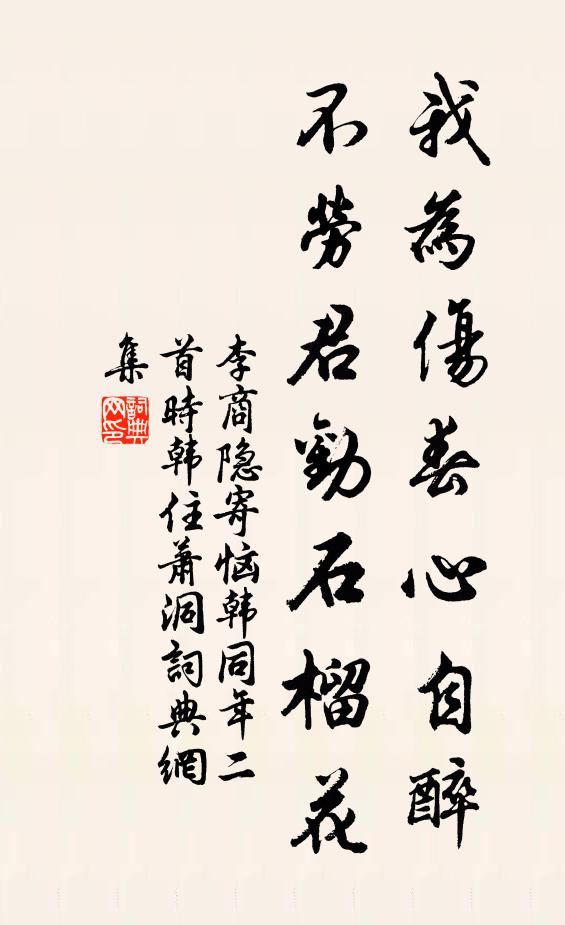 我為傷春心自醉
不勞君勸石榴花
李商隐寄恼韩同年二
首時韩住萧洞詞典網
集
詞典
网印